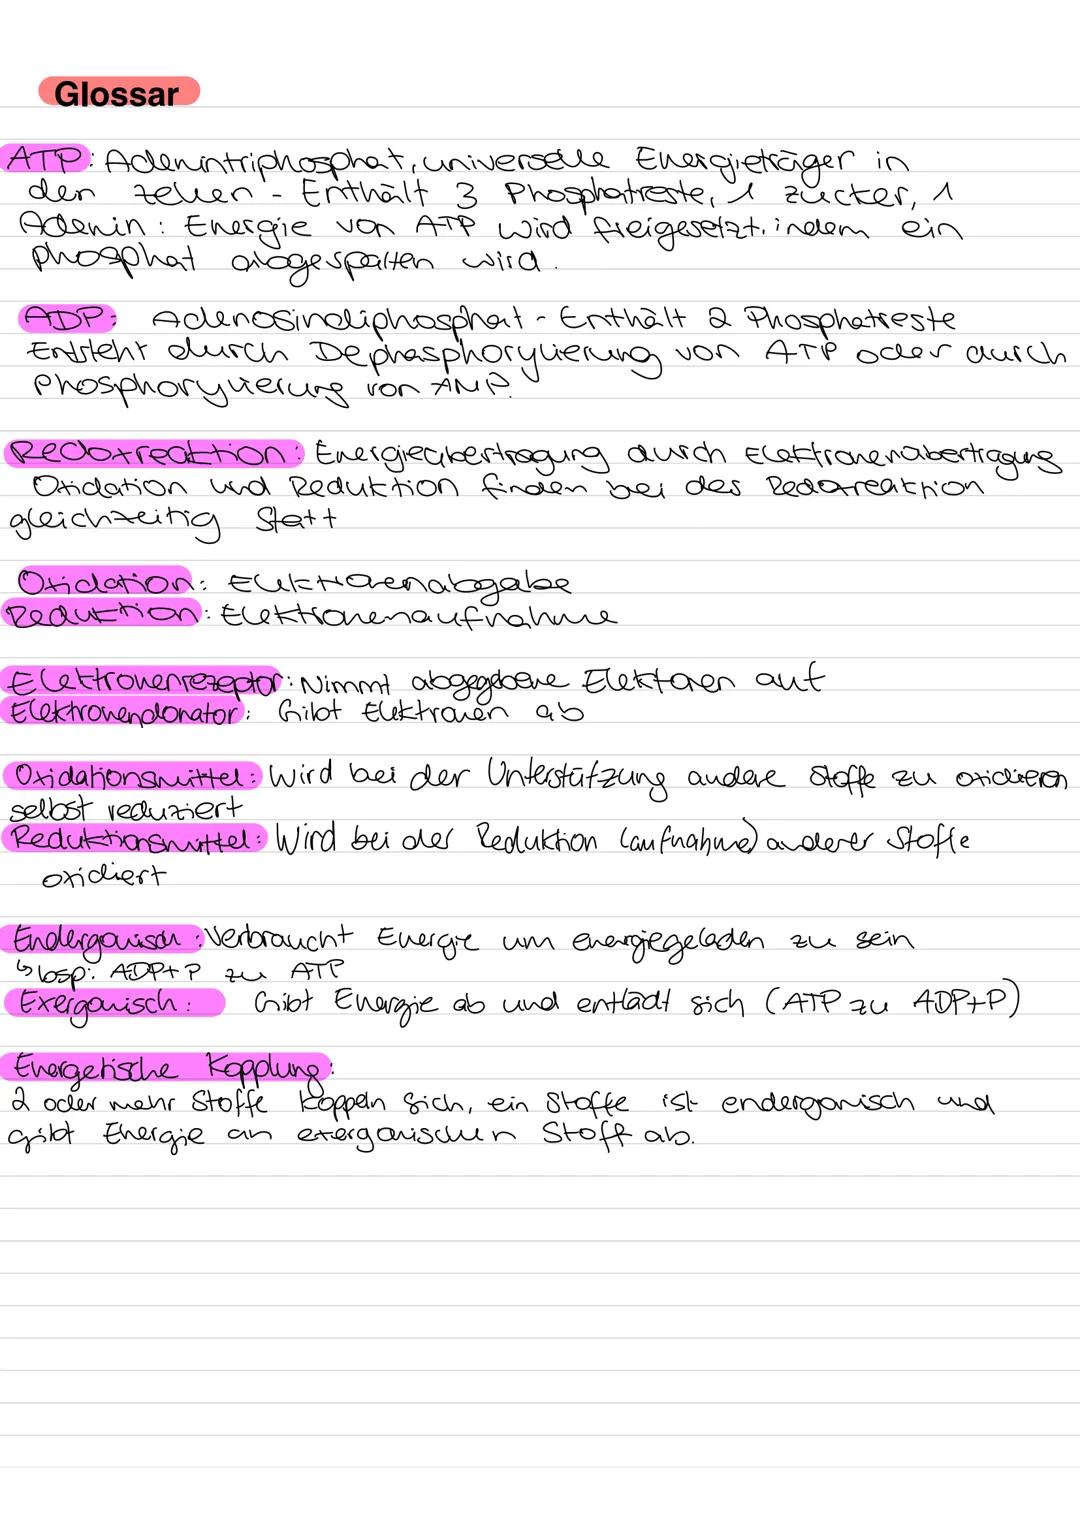 Glossar
ATP: Adenintriphosphat, universelle Energieträger in
den Zellen - Enthält 3 Phosphatreste, 1 Zucker, 1
Adenin: Energie von ATP wird freigesetzt, indem ein
phosphat abgespalten wird.
ADP: Adenosindiphosphat - Enthält 2 Phosphatreste
Entsteht durch Dephosphorylierung von ATP oder durch
Phosphorylierung von AMP.
Redoxreaktion: Energieübertragung durch Elektronenübertragung
Oxidation und Reduktion finden bei der Redoxreaktion
gleichzeitig statt
Oxidation: Elektronenabgabe
Reduktion: Elektronenaufnahme
Elektronenrezeptor: Nimmt abgegebene Elektonen auf
Elektronendonator: Gibt Elektronen ab
Oxidationsmittel: Wird bei der Unterstützung andere Stoffe zu oxidieren
selbst reduziert
Reduktionsmittel: Wird bei der Reduktion (aufnahme) anderer Stoffe
oxidiert
Endergonisch: Verbraucht Energie um energiegeladen zu sein
↳ bsp: ADP+P zu ATP
Exergonisch: Gibt Energie ab und entlädt sich (ATP zu ADP+P)
Energetische Kopplung:
2 oder mehr Stoffe koppeln sich, ein Stoffe ist endergonisch und
gibt Energie an exergonischen Stoff ab.